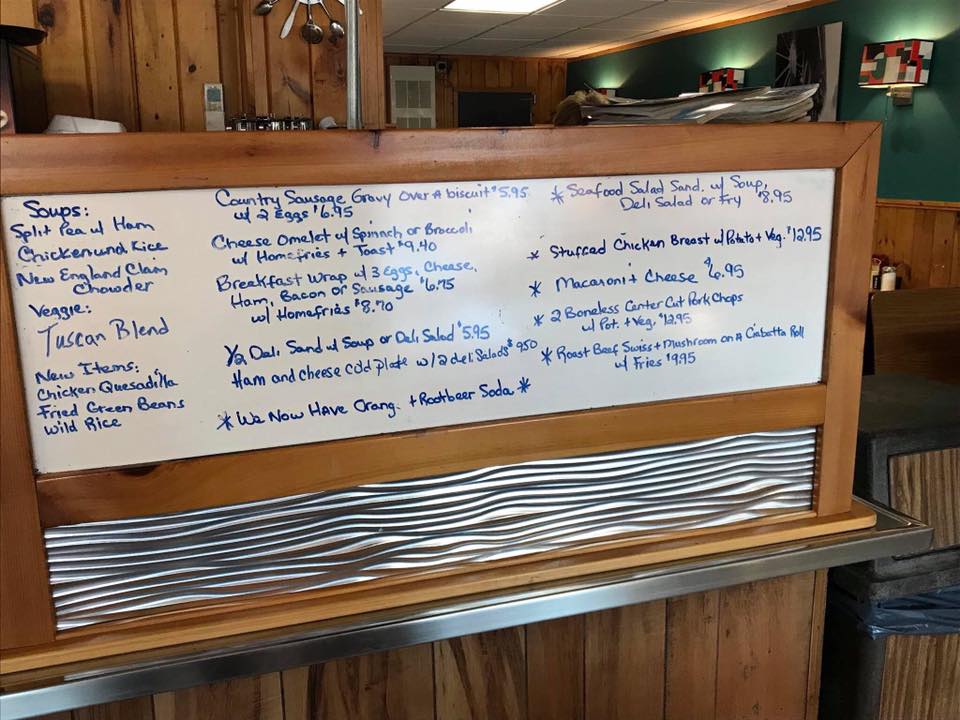 Soups:
Split Pea w/ Ham
Chicken and Rice
New England Clam
Chowder
Veggie:
Tuscan Blend
New Items:
Chicken Quesadilla
Fried Green Beans
Wild Rice
Country Sausage Gravy Over A biscuit $5.95
w/ 2 Eggs $6.95
Cheese Omelet w/ Spinach or Broccoli
w/ Homefries + Toast $9.40
Breakfast Wrap w/ 3 Eggs, Cheese,
Ham, Bacon or Sausage $6.75
w/ Homefries $8.70
1/2 Deli Sand w/ Soup or Deli Salad $5.95
Ham and cheese cold plate w/ 2 deli Salads $9.50
* We Now Have Orang. + Rootbeer Soda *
* Seafood Salad Sand. w/ Soup,
Deli Salad or Fry $8.95
* Stuffed Chicken Breast w/ Potato + Veg. $12.95
* Macaroni + Cheese $6.95
* 2 Boneless Center Cut Pork Chops
w/ Pot. + Veg. $12.95
* Roast Beef Swiss + Mushroom on A Ciabatta Roll
w/ Fries $9.95